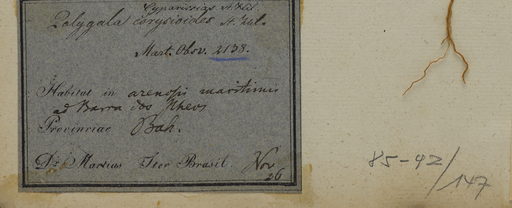 Cyparissias St. Hil.
Polygala corysioides St. Hil.
Mart. Obsv. 2138.
Habitat in arenosis maritimis
ad Barra dos Ilheos
Provinciae Bah.
Dr. Martius Iter Brasil. Nov
26
85-92/147